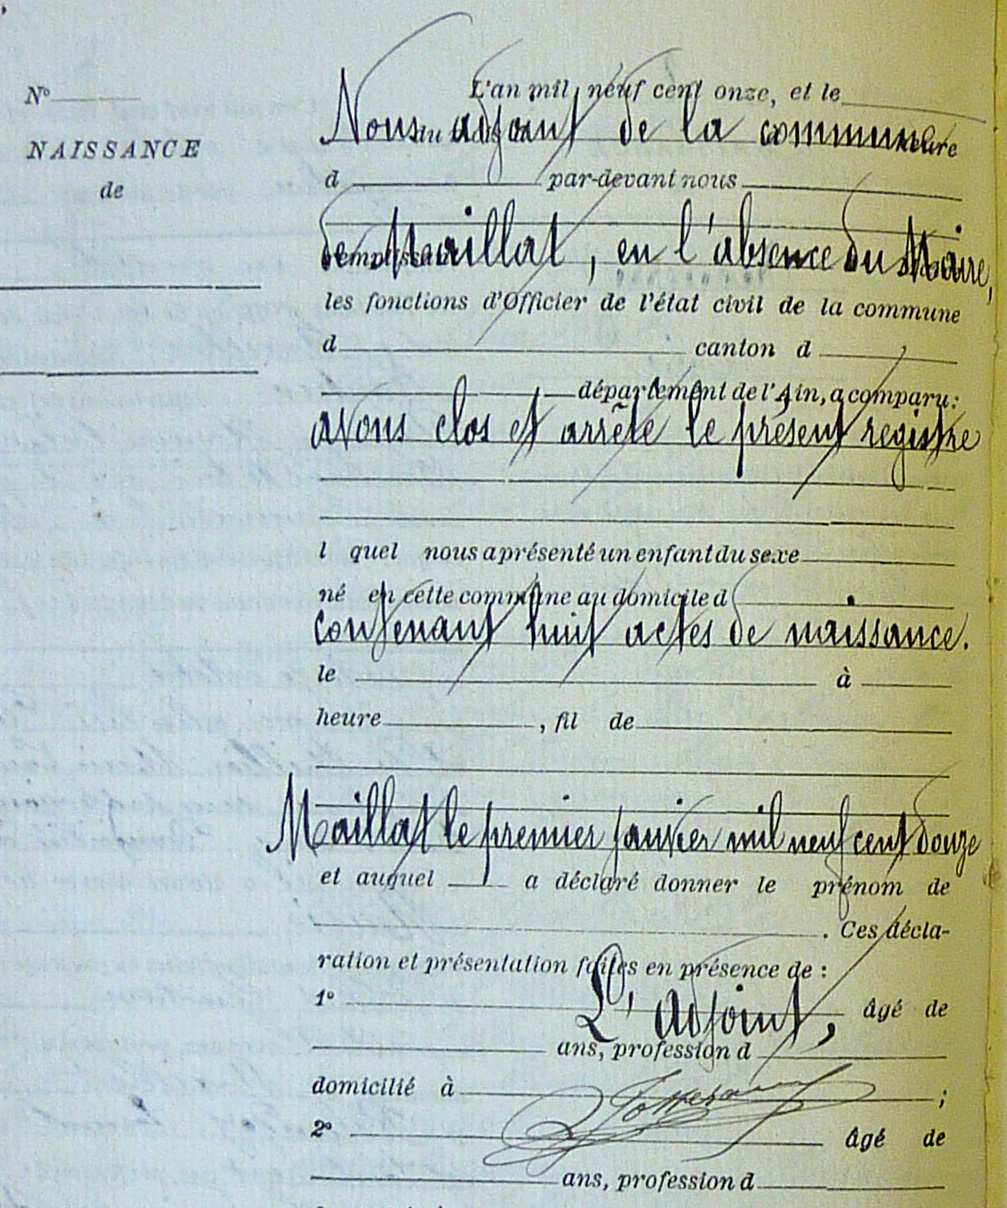 N°
NAISSANCE
de
L'an mil neuf cent onze, et le
Nous adjoint de la commune
d par-devant nous
de Maillat, en l'absence du Maire,
les fonctions d'Officier de l'état civil de la commune
d canton d
département de l'Ain, a comparu:
avons clos et arrêté le présent registre
l quel nous a présenté un enfant du sexe
né en cette commune au domicile d
contenant huit actes de naissance.
le à
heure , fil de
Maillat le premier janvier mil neuf cent douze
et auquel a déclaré donner le prénom de
. Ces décla-
ration et présentation faites en présence de :
1° âgé de
L'adjoint,
ans, profession d
domicilié à ;
2° âgé de
ans, profession d